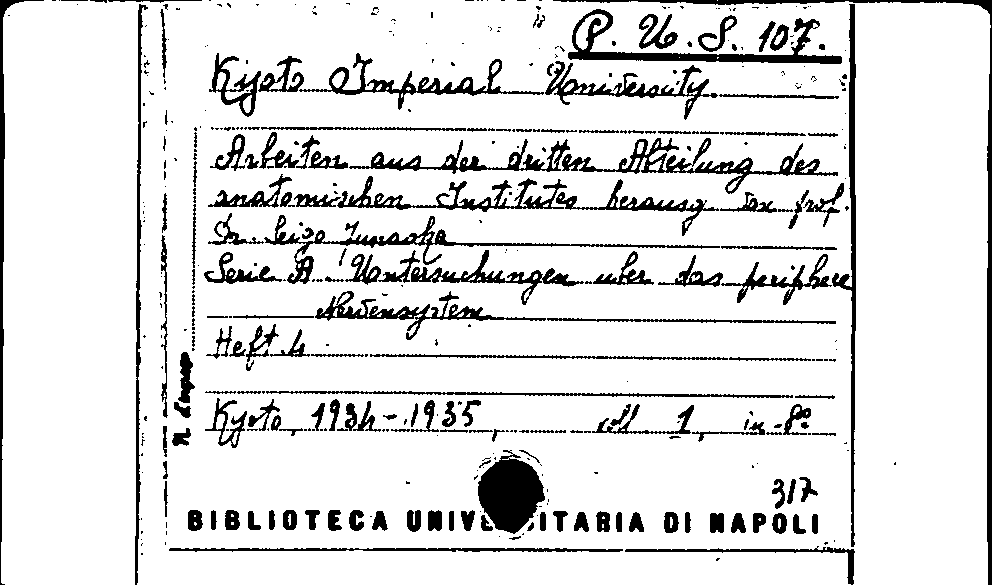 P. U. S. 107.
Kyoto Imperial University.
Arbeiten aus der dritten Abteilung des
anatomischen Institutes herausg von prof.
Dr. Seigo Funaoka
Serie A. Untersuchungen uber das periphere
Nervensystem
Heft. 4
Kyoto, 1934-1935, voll 1, in-8º
N. d'ingr
317
BIBLIOTECA UNIVERSITARIA DI NAPOLI